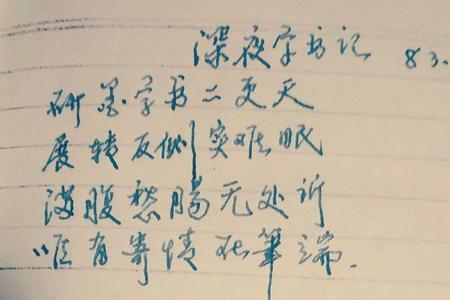 深夜学书记 83.
研墨学书二更天
展转反侧实难眠
满腹愁肠无处诉
唯有寄情在筆端.